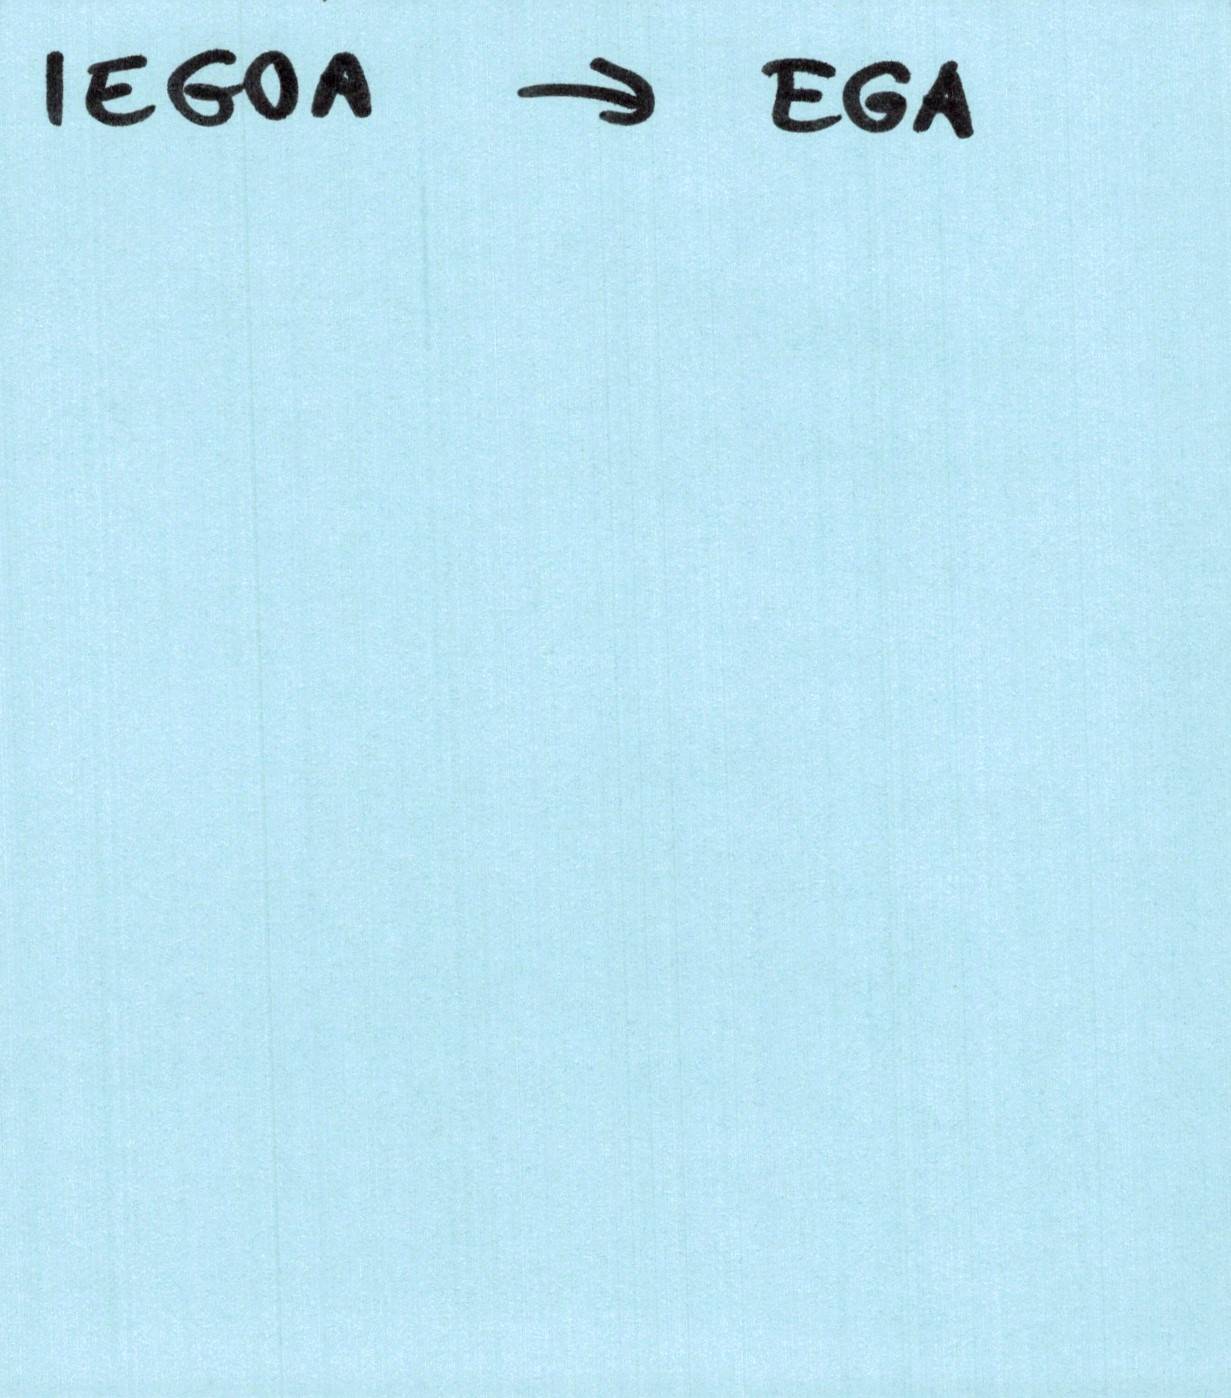 IEGOA → EGA